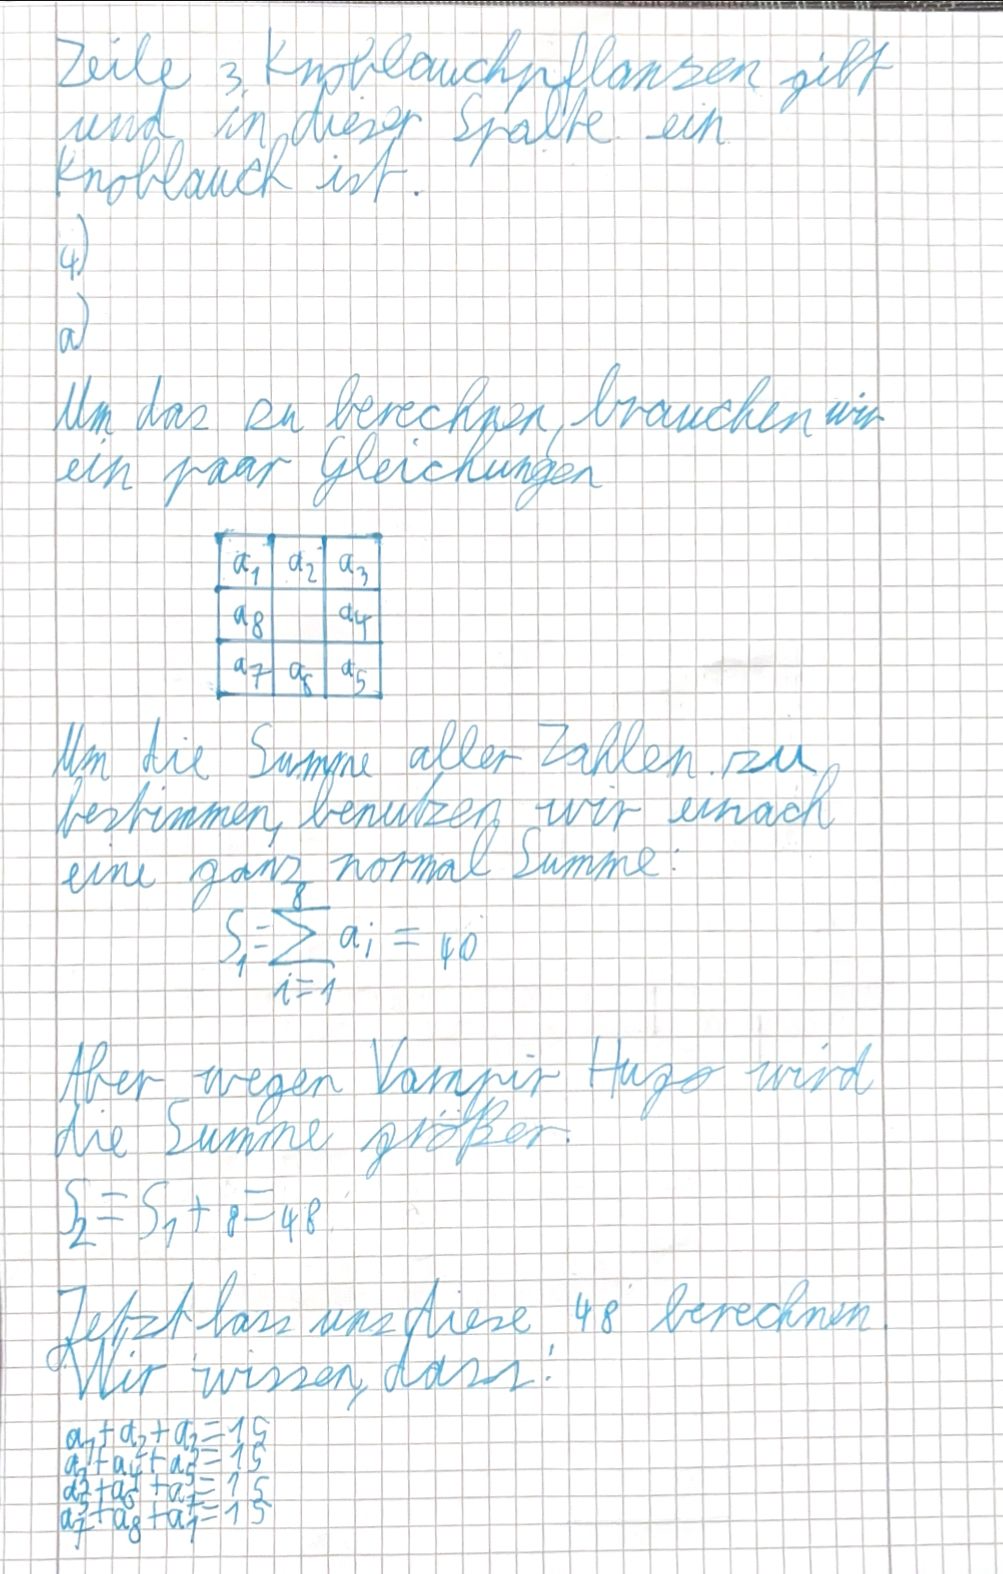 Zeile 3 Knoblauchpflanzen gibt
und in dieser Spalte ein
Knoblauch ist.
4)
a)
Um das zu berechnen, brauchen wir
ein paar Gleichungen
a₁ a₂ a₃
a₈ a₄
a₇ a₆ a₅
Um die Summe aller Zahlen zu
bestimmen, benutzen wir einach
eine ganz normal Summe:
S₁ = ∑_{i=1}^{8} aᵢ = 40
Aber wegen Vampir Hugo wird
die Summe größer.
S₂ = S₁ + 8 = 48
Jetzt lass uns diese 48 berechnen.
Wir wissen, dass:
a₁ + a₂ + a₃ = 15
a₃ + a₄ + a₅ = 15
a₅ + a₆ + a₇ = 15
a₇ + a₈ + a₁ = 15